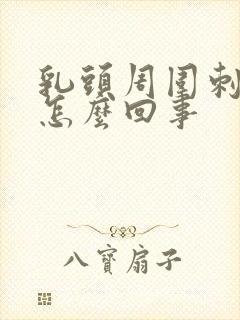 乳頭周围刺
怎麼回事
八寶扇子